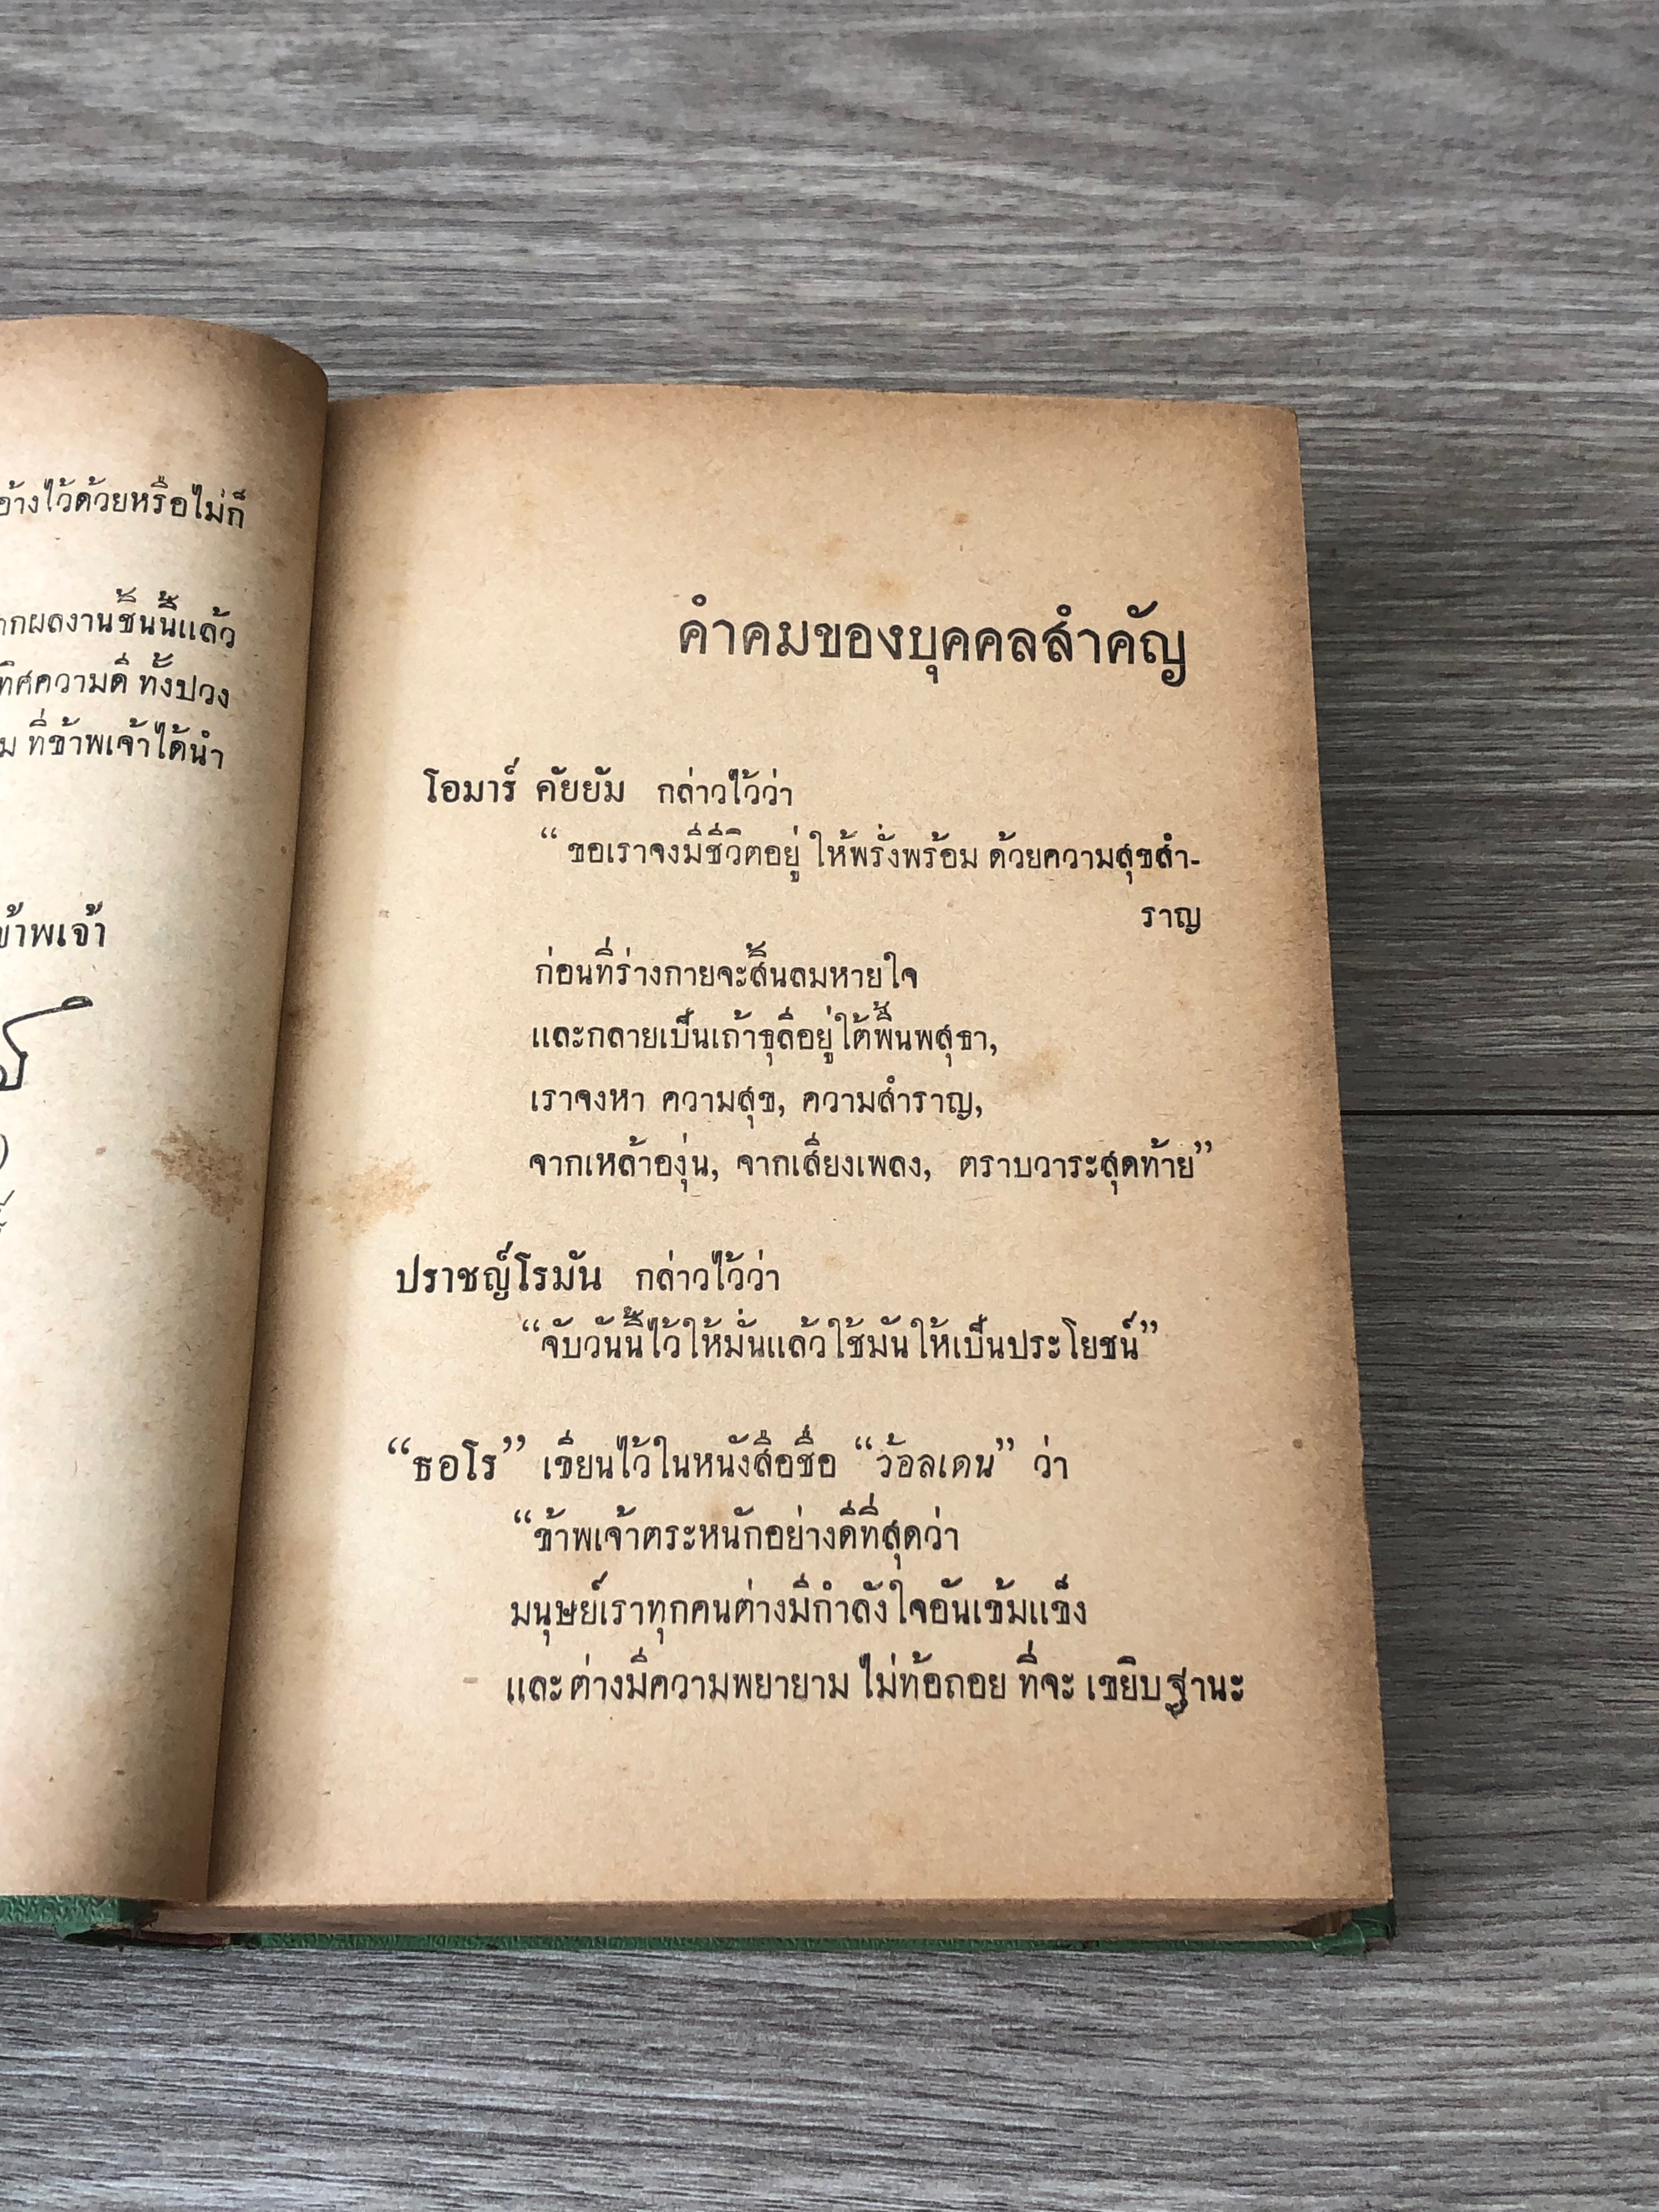 อ้างไว้ด้วยหรือไม่ก็
ากผลงานชิ้นนี้แล้ว
ทิศความดี ทั้งปวง
ม ที่ข้าพเจ้าได้นำ
ข้าพเจ้า
คำคมของบุคคลสำคัญ
โอมาร์ คัยยัม กล่าวไว้ว่า
“ ขอเราจงมีชีวิตอยู่ ให้พรั่งพร้อม ด้วยความสุขสำ-
ราญ
ก่อนที่ร่างกายจะสิ้นลมหายใจ
และกลายเป็นเถ้าธุลีอยู่ใต้พื้นพสุธา,
เราจงหา ความสุข, ความสำราญ,
จากเหล้าองุ่น, จากเสียงเพลง, ตราบวาระสุดท้าย”
ปราชญ์โรมัน กล่าวไว้ว่า
“จับวันนี้ไว้ให้มั่นแล้วใช้มันให้เป็นประโยชน์”
“ธอโร” เขียนไว้ในหนังสือชื่อ “ว้อลเดน” ว่า
“ข้าพเจ้าตระหนักอย่างดีที่สุดว่า
มนุษย์เราทุกคนต่างมีกำลังใจอันเข้มแข็ง
และต่างมีความพยายาม ไม่ท้อถอย ที่จะ เขยิบฐานะ